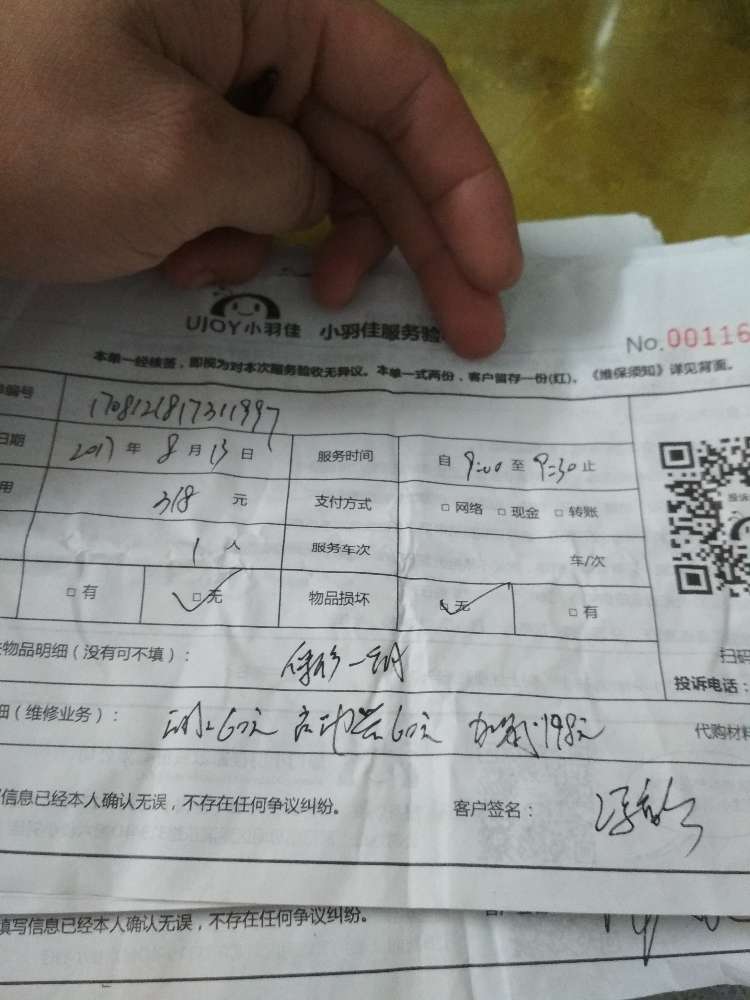 UJOY小羽佳 小羽佳服务验
No.00116
本单一经续签，即视为对本次服务验收无异议。本单一式两份，客户留存一份(红)。《维保须知》详见背面。
编号 1708121817311997
日期 2017 年 8 月 13 日 服务时间 自 9:00 至 9:30 止
用 318 元 支付方式 □ 网络 □ 现金 □ 转账
1 人 服务车次 车/次
□ 有 □ 无 物品损坏 □ 无 □ 有
物品明细（没有可不填）：
扫码
投诉电话：
细（维修业务）： 60元 启动器60元 198元 代购材料
信息已经本人确认无误，不存在任何争议纠纷。 客户签名：
填写信息已经本人确认无误，不存在任何争议纠纷。